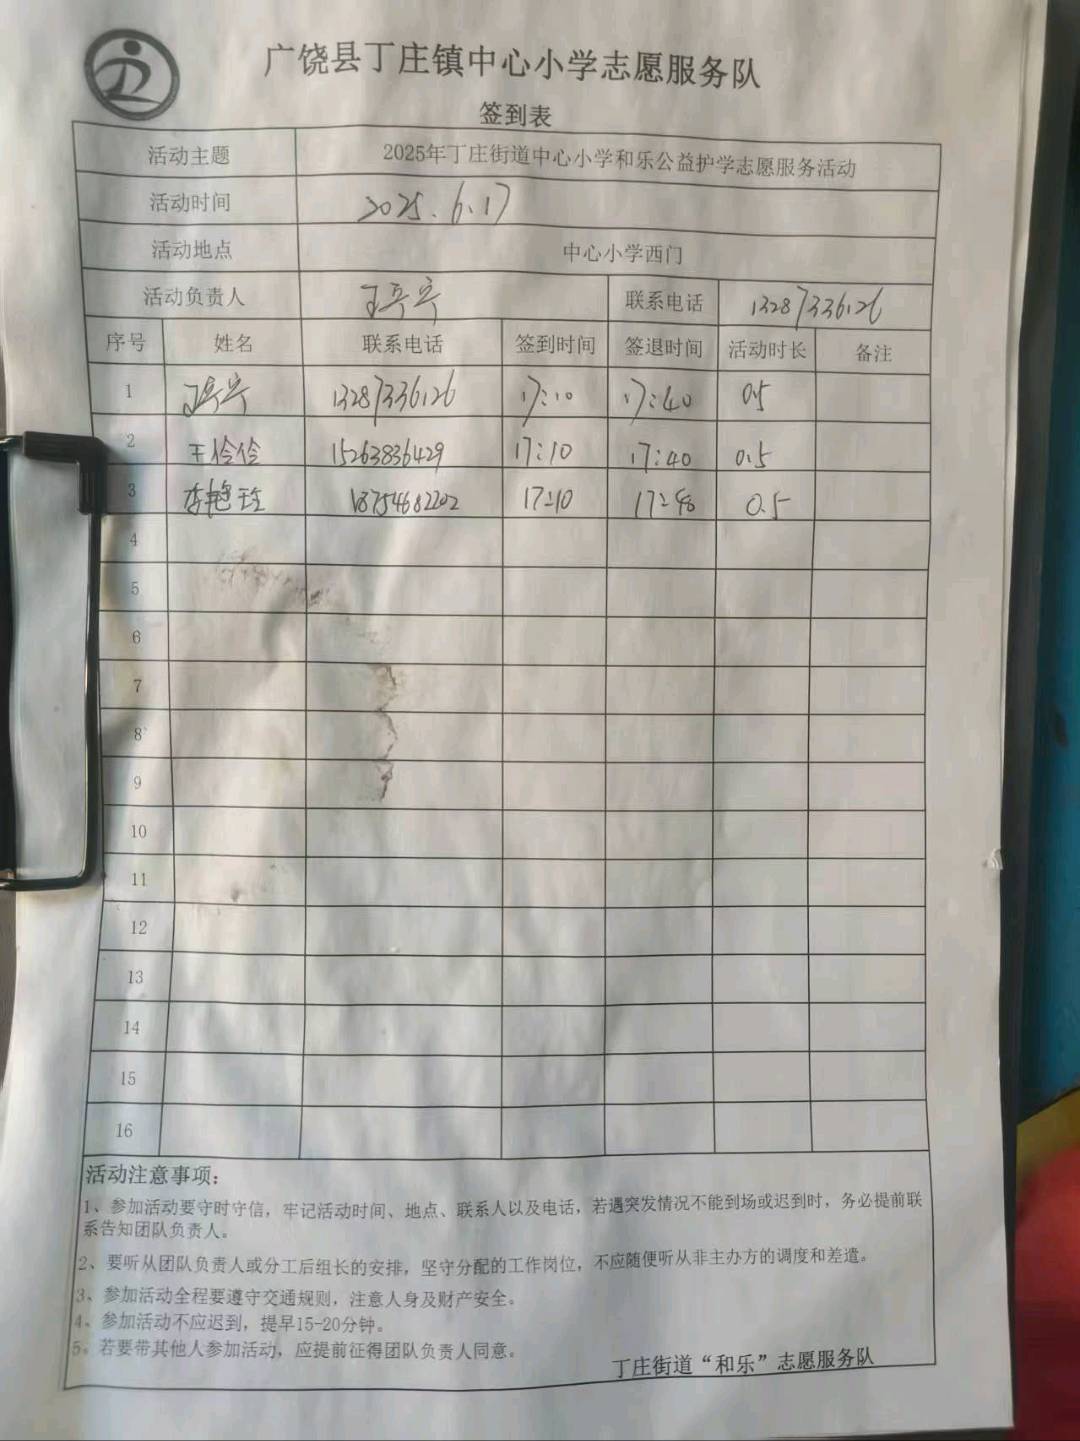 广饶县丁庄镇中心小学志愿服务队
签到表
活动主题 2025年丁庄街道中心小学和乐公益护学志愿服务活动
活动时间 2025.6.17
活动地点 中心小学西门
活动负责人 联系电话 13287336126
序号 姓名 联系电话 签到时间 签退时间 活动时长 备注
1 13287336126 17:10 17:40 0.5
2 王伶伶 15263836429 17:10 17:40 0.5
3 李艳玲 18754682202 17:10 17:40 0.5
4
5
6
7
8
9
10
11
12
13
14
15
16
活动注意事项:
1、参加活动要守时守信，牢记活动时间、地点、联系人以及电话，若遇突发情况不能到场或迟到时，务必提前联
系告知团队负责人。
2、要听从团队负责人或分工后组长的安排，坚守分配的工作岗位，不应随便听从非主办方的调度和差遣。
3、参加活动全程要遵守交通规则，注意人身及财产安全。
4、参加活动不应迟到，提早15-20分钟。
5。若要带其他人参加活动，应提前征得团队负责人同意。
丁庄街道“和乐”志愿服务队